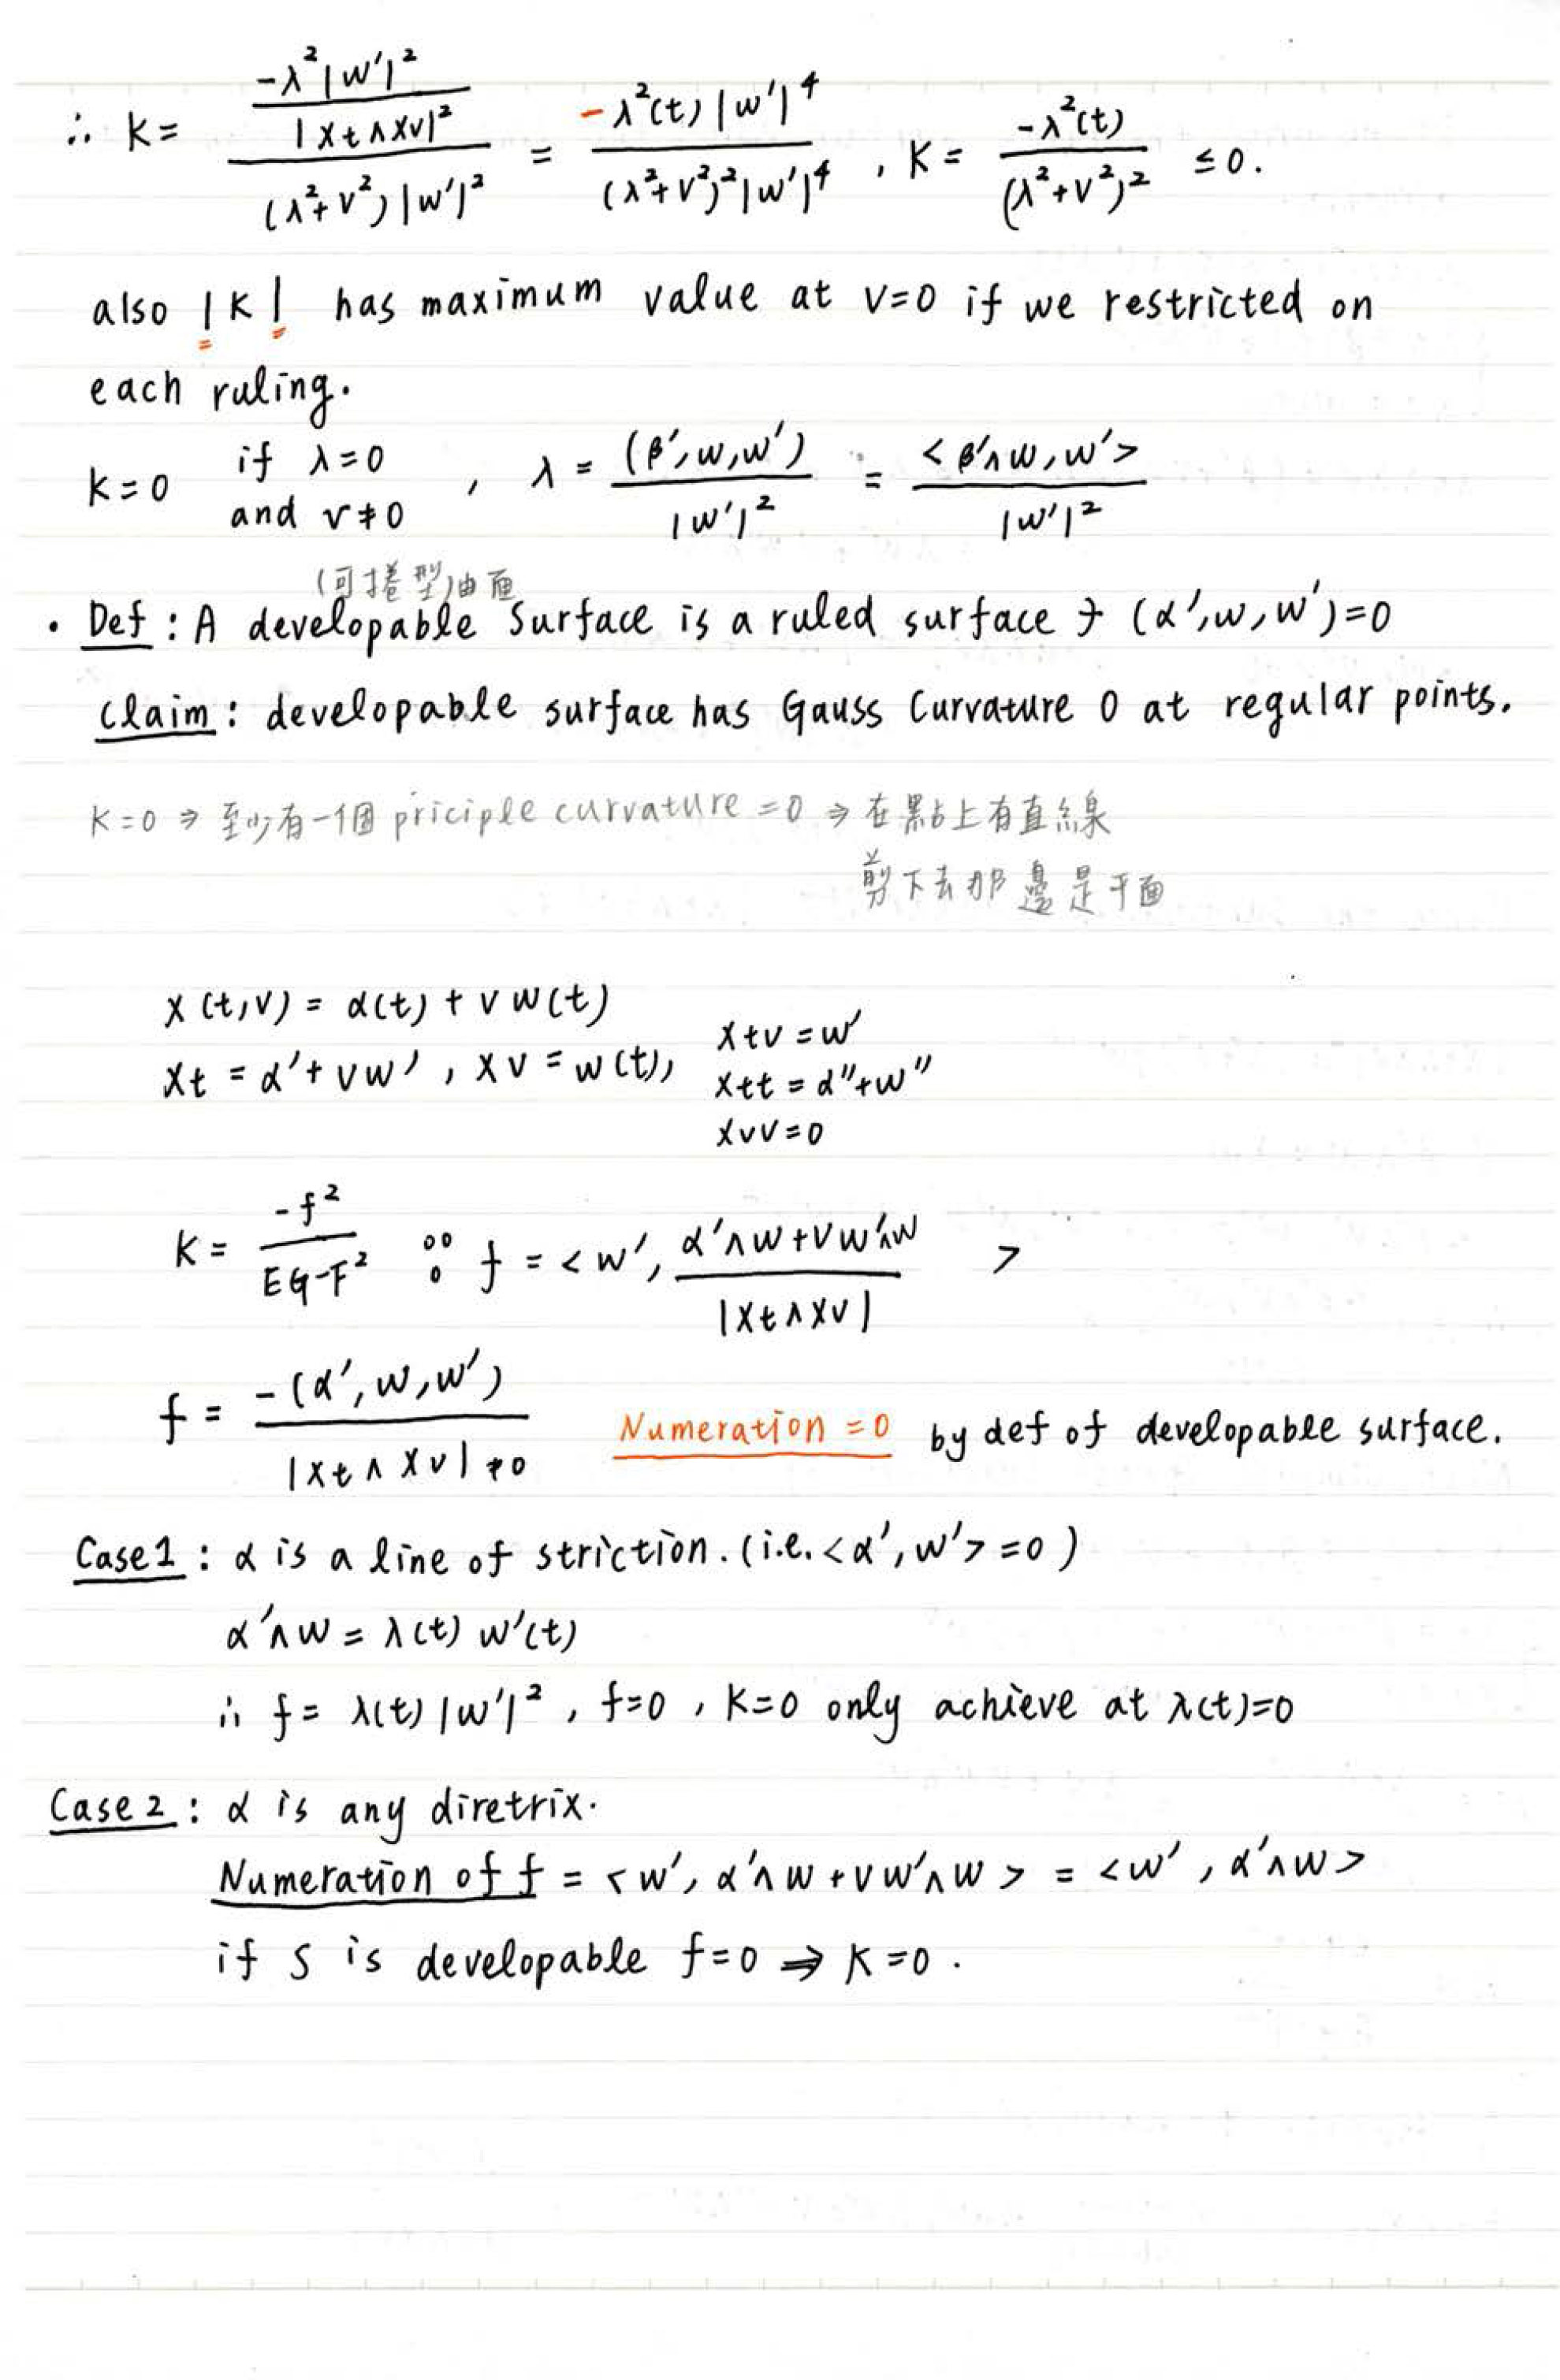 ∴ K = \frac{\frac{-λ²|w'|²}{|Xt∧Xv|²}}{(λ²+v²)|w'|²} = \frac{-λ²(t)|w'|⁴}{(λ²+v²)²|w'|⁴} , K = \frac{-λ²(t)}{(λ²+v²)²} ≤ 0.
also |K| has maximum value at v=0 if we restricted on
each ruling.
K=0 if λ=0 and v≠0 , λ = \frac{(β',w,w')}{|w'|²} = \frac{<β'∧w,w'>}{|w'|²}
(可捲型)曲面
• Def : A developable Surface is a ruled surface ∋ (α',w,w')=0
Claim : developable surface has Gauss Curvature 0 at regular points.
K=0 ⇒ 至少有一個 priciple curvature = 0 ⇒ 在點上有直線
剪下去那邊是平面
X(t,v) = α(t) + v w(t)
Xt = α' + vw' , Xv = w(t),
Xtv = w'
Xtt = α''+w''
Xvv = 0
K = \frac{-f²}{EG-F²} ∵ f = <w', \frac{α'∧w+vw'∧w}{|Xt∧Xv|} >
f = \frac{-(α',w,w')}{|Xt∧Xv| ≠0} Numeration = 0 by def of developable surface.
Case1 : α is a line of striction. (i.e. <α',w'> =0 )
α'∧w = λ(t) w'(t)
∴ f = λ(t)|w'|² , f=0 , K=0 only achieve at λ(t)=0
Case 2 : α is any diretrix.
Numeration of f = <w', α'∧w + vw'∧w > = <w' , α'∧w>
if S is developable f=0 ⇒ K=0 .